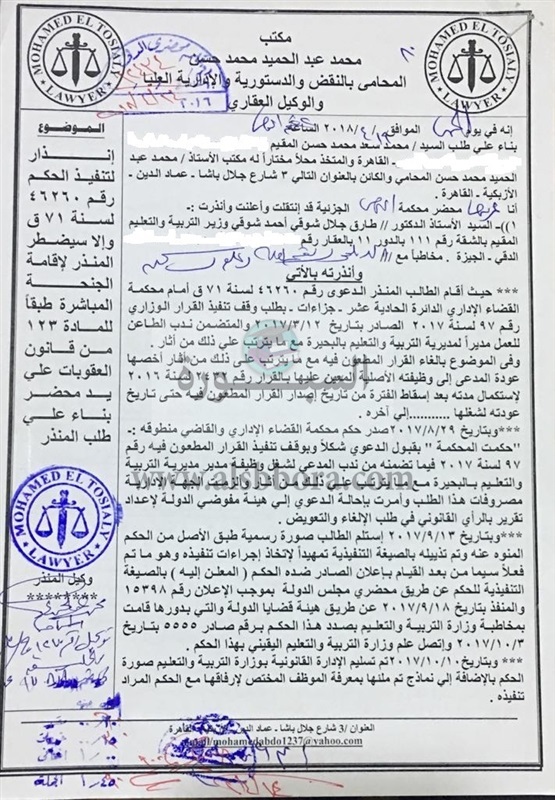 MOHAMED EL TOSIALY
LAWYER
مكتب
محمد عبد الحميد محمد حسن
المحامى بالنقض والدستورية والإدارية العليا
والوكيل العقاري
MOHAMED EL TOSIALY
LAWYER
الموضوع
إنذار
لتنفيذ الحكم
رقم ٤٦٢٦٠
لسنة ٧١ ق
وإلا سيضطر
المنذر لإقامة
الجنحة
المباشرة طبقاً
للمادة ١٢٣
من قانون
العقوبات علي
يد محضر
بناء علي
طلب المنذر
MOHAMED EL TOSIALY
LAWYER
وكيل المنذر
********
إنه في يوم الموافق / /٢٠١٨ الساعة
بناء علي طلب السيد / محمد سعد محمد حسن المقيم
- القاهرة والمتخذ محلاً مختاراً له مكتب الأستاذ / محمد عبد
الحميد محمد حسن المحامي والكائن بالعنوان التالي ٣ شارع جلال باشا - عماد الدين -
الأزبكية - القاهرة .
أنا محضر محكمة الجزئية قد إنتقلت وأعلنت وأنذرت :-
١)- السيد الأستاذ الدكتور // طارق جلال شوقي أحمد شوقي وزير التربية والتعليم
المقيم بالشقة رقم ١١١ بالدور ١١ بالعقار رقم
الدقي - الجيزة . مخاطباً مع //
وأنذرته بالأتي
*** حيث أقام الطالب المنذر الدعوى رقم ٤٦٢٦٠ لسنة ٧١ ق أمام محكمة
القضاء الإداري الدائرة الحادية عشر - جزاءات - بطلب وقف تنفيذ القرار الوزاري
رقم ٩٧ لسنة ٢٠١٧ الصادر بتاريخ ٢٠١٧/٣/١٢ والمتضمن ندب الطاعن
للعمل مديراً لمديرية التربية والتعليم بالبحيرة مع ما يترتب علي ذلك من أثار .
وفي الموضوع بالغاء القرار المطعون فيه مع ما يترتب على ذلك من أثار أخصها
عودة المدعى إلى وظيفته الأصلية المعين عليها بالقرار رقم لسنة ٢٠١٦
لإستكمال مدته بعد إسقاط الفترة من تاريخ إصدار القرار المطعون فيه حتى تاريخ
عودته لشغلها ........... إلي أخره .
***وبتاريخ ٢٠١٧/٨/٢٩ صدر حكم محكمة القضاء الإداري والقاضي منطوقه :-
"حكمت المحكمة " بقبول الدعوي شكلاً وبوقف تنفيذ القرار المطعون فيه رقم
٩٧ لسنة ٢٠١٧ فيما تضمنه من ندب المدعي لشغل وظيفة مدير مديرية التربية
والتعليم بالبحيرة مع
مصروفات هذا الطلب وأمرت بإحالة الدعوي إلي هيئة مفوضي الدولة لإعداد
تقرير بالرأي القانوني في طلب الإلغاء والتعويض .
*** وبتاريخ ٢٠١٧/٩/١٣ إستلم الطالب صورة رسمية طبق الأصل من الحكم
المنوه عنه وتم تذييله بالصيغة التنفيذية تمهيداً لإتخاذ إجراءات تنفيذه وهو ما تم
فعلاً سيما من بعد القيام بإعلان الصادر ضده الحكم ( المعلن إليه ) بالصيغة
التنفيذية للحكم عن طريق محضري مجلس الدولة بموجب الإعلان رقم ١٥٣٩٨
والمنفذ بتاريخ ٢٠١٧/٩/١٨ عن طريق هيئة قضايا الدولة والتي بدورها قامت
بمخاطبة وزارة التربية والتعليم بصدد هذا الحكم برقم صادر ٥٥٥٥ بتاريخ
٢٠١٧/١٠/٣ وإتصل علم وزارة التربية والتعليم اليقيني بهذا الحكم .
*** وبتاريخ ٢٠١٧/١٠/١٠ تم تسليم الإدارة القانونية بوزارة التربية والتعليم صورة
الحكم بالإضافة إلي نماذج تم ملئها بمعرفة الموظف المختص لإرفاقها مع الحكم المراد
تنفيذه .
السبورة
www.alsbbora.com
العنوان /٣ شارع جلال باشا - عماد الدين - القاهرة
email/mohamedabdo1237@yahoo.com